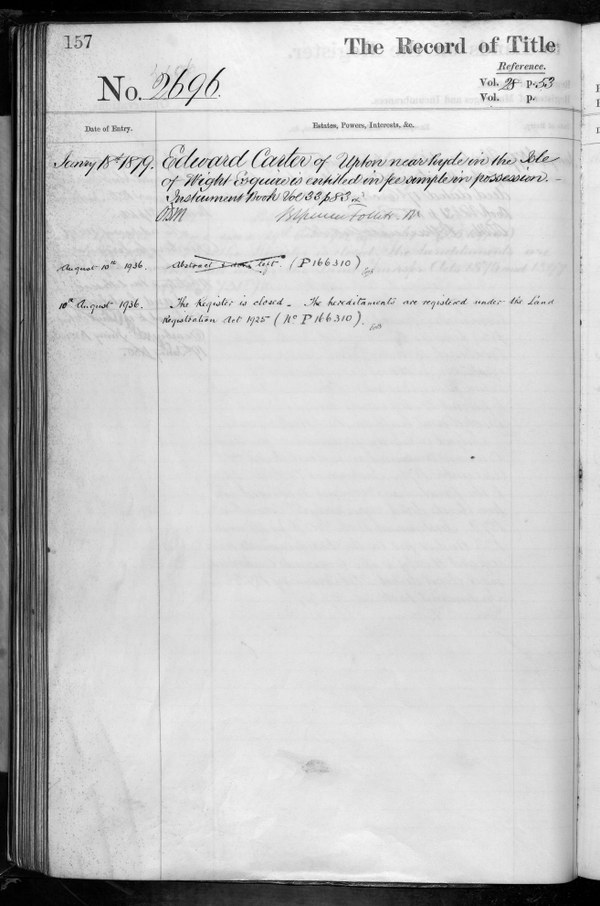 157
The Record of Title
Reference.
No. 2696.
Vol. p. 53
Vol. p.
Date of Entry.
Estates, Powers, Interests, &c.
18th 1879. Edward Carter of Upton near Ryde in the Isle
of Wight Esquire is entitled in fee simple in possession. –
Instrument Book Vol 33 p 83
Brent Spencer Follett
August 10th 1936. Abstract left. (P 166310)
10th August 1936. The Register is closed – The hereditaments are registered under the Land
Registration Act 1925 (No P 166310).